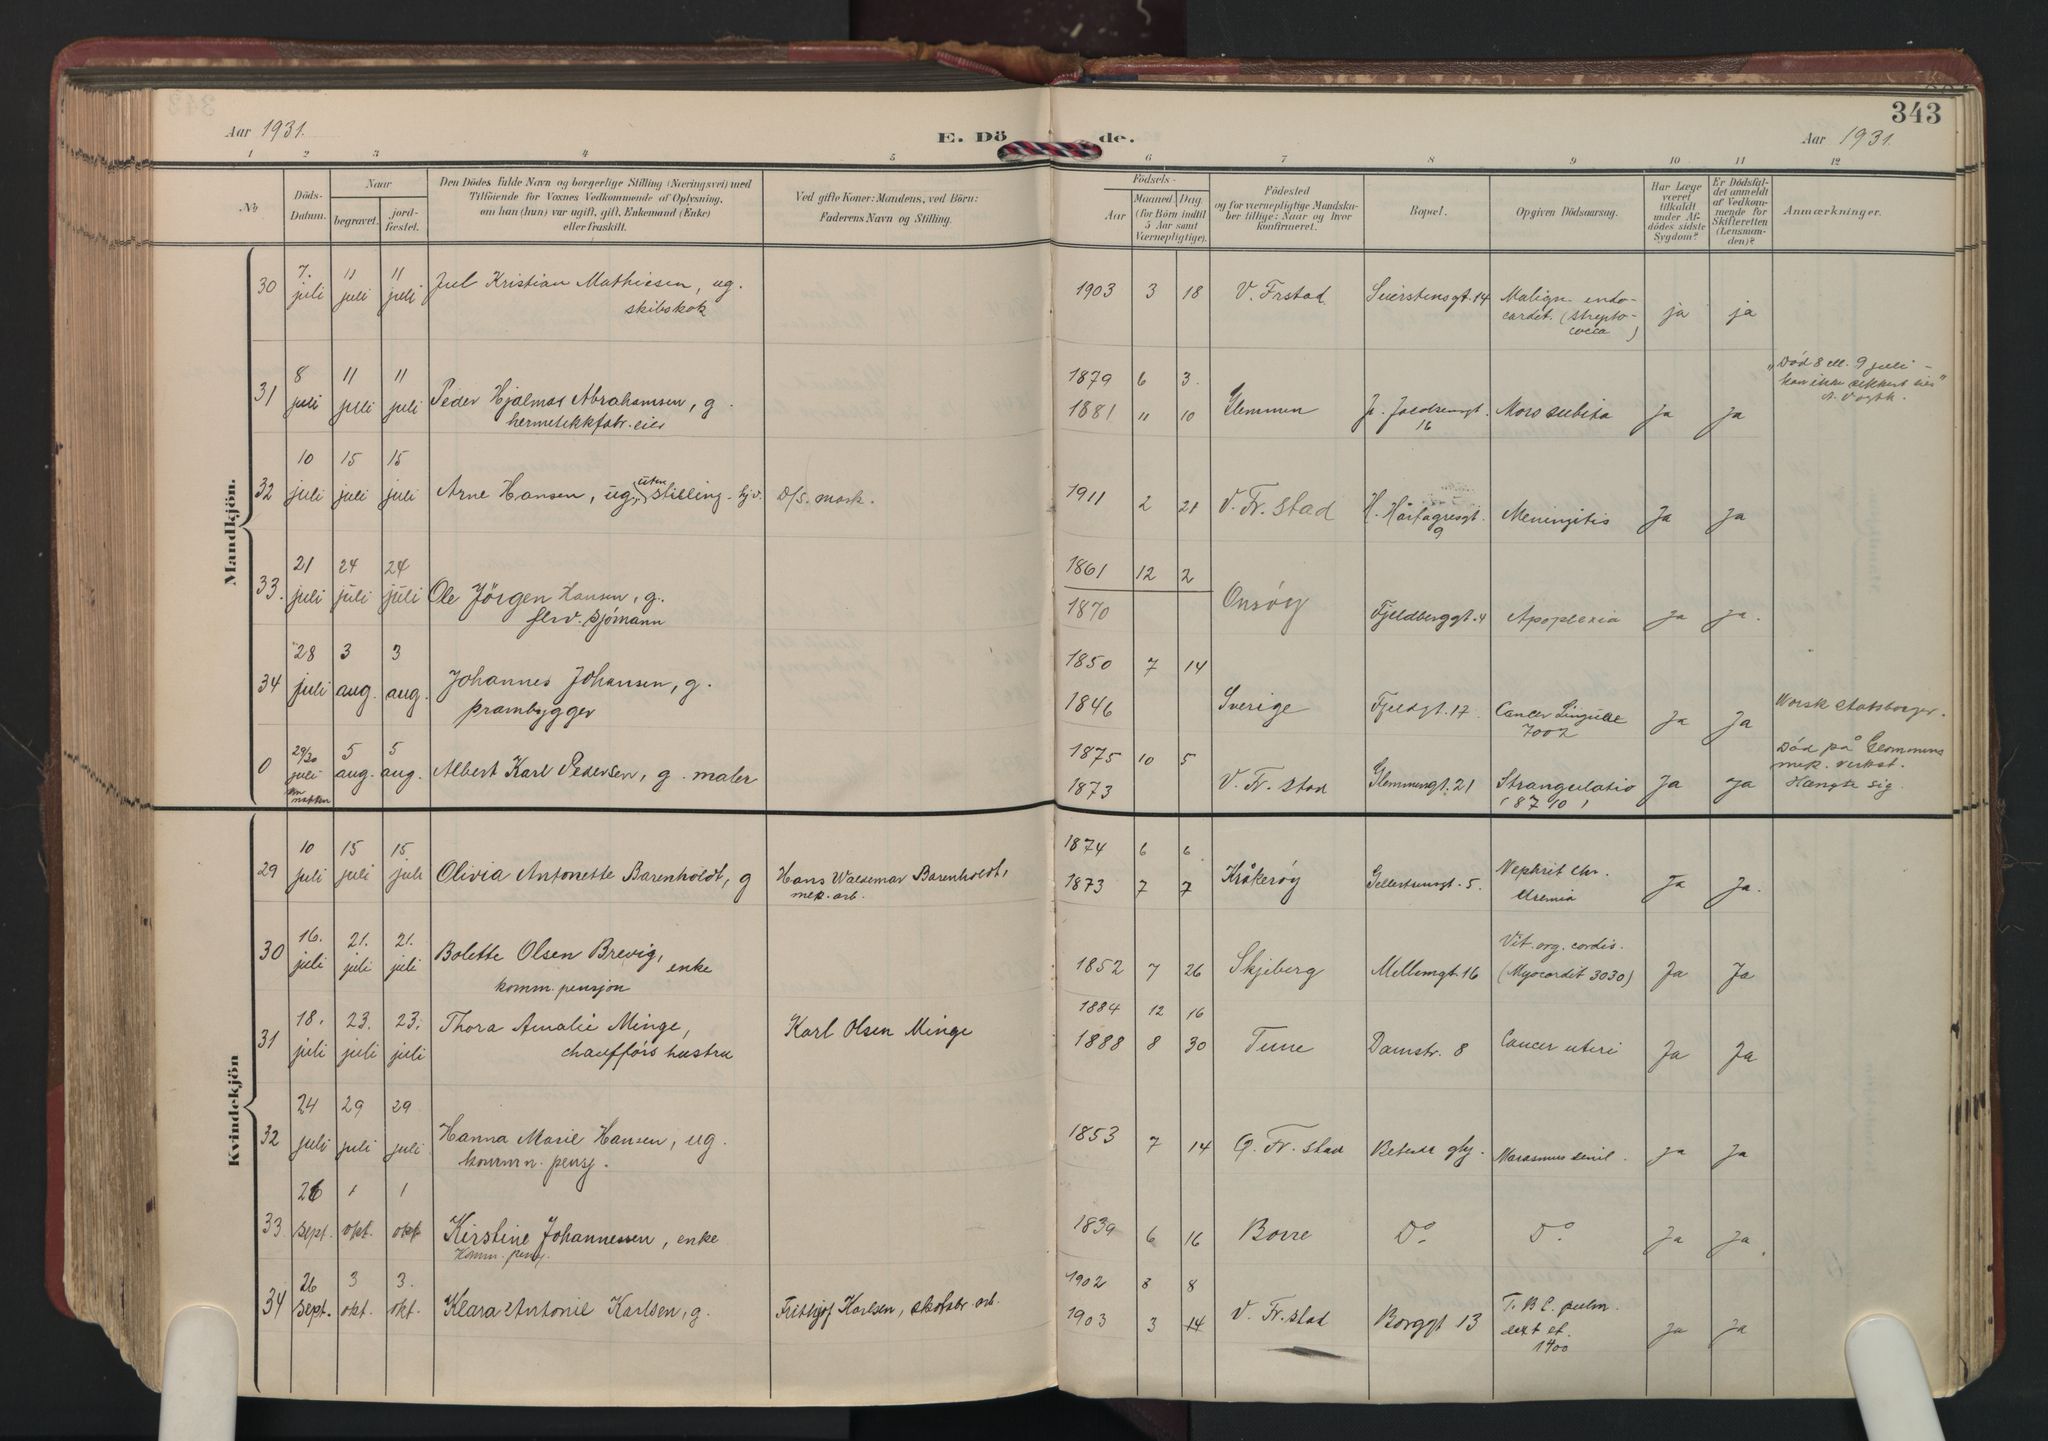 343
Aar 1931.
E. Dö de.
Aar 1931.
1 2 3 4 5 6 7 8 9 10 11 12
No
Döds-Datum.
Naar
begravet.
jord-fæstet.
Den Dödes fulde Navn og borgerlige Stilling (Næringsvei) med
Tilföiende for Voxnes Vedkommende af Oplysning,
om han (hun) var ugift, gift, Enkemand (Enke)
eller fraskilt.
Ved gifte Koner: Mandens, ved Börn:
Faderens Navn og Stilling.
Födsels-
Aar
Maaned Dag
(for Börn indtil
5 Aar samt
Værnepligtige).
Födested
og for værnepligtige Mandsku-
ber tillige: Naar og hvor
konfirmeret.
Bopæl.
Opgiven Dödsaarsag.
Har Læge
været
tilkaldt
under Af-
dödes sidste
Sygdom?
Er Dödsfal-
det anmeldt
af Vedkom-
mende for
Skifteretten
(Lensman-
den)?
Anmærkninger.
Mandkjön.
30 7. juli 11 juli 11 juli Jul Kristian Mathiesen, ug. skibskok 1903 3 18 V. Frstad. 14 Malign endo-
cardet. (strepto-
cocca) ja ja
31 8 juli 11 juli 11 juli Peder Hjalmar Abrahamsen, g. hermetikkfabr. eier 1879 6 3.
1881 11 10 Glemmen J. Jacobsensgt. 16 Mors subita Ja Ja "Død 8 ell. 9 juli -
kan ikke sikkert sies"
32 10 juli 15 juli 15 juli Arne Hansen, ug. uten stilling hjv. D/S. mask. 1911 2 21 V. Fr. stad H. Hårfagresgt. 9 Meningitis Ja Ja
33. 21 juli 24 juli 24 juli Ole Jörgen Hansen, g. sjómann 1861 12 2
1870 Onsøy Fjeldberggt. 4 Apoplexia Ja Ja.
34 28 juli 3 aug. 3 aug. Johannes Johansen, g. prambygger 1850 7 14
1846 Sverige Fjeldgt. 17 Cancer Linguae Ja Ja Norsk statsborger.
0 29/30 juli om natten 5 aug. 5 aug. Albert Karl Pedersen, g. maler 1875 10 5
1873 V. Fr. stad Glemmengt. 21 Strangulatio
(8710) Ja Ja Død på Glommens
mek. verkst.
Hængte sig.
Kvindekjön
29 10 juli 15 juli 15. juli Olivia Antonette Barenholdt, g Hans Waldemar Barenholdt,
mek. arb. 1874 6 6
1873 7 7 Kråkerøy Gellertsensgt. 5. Nephrit chr.
Uremia Ja Ja.
30 16. juli 21. juli 21. juli Bolette Olsen Brevig, enke
komm. pensjon 1852 7 26 Skjeberg Mellemgt. 16 Vit. org. cordis.
(Myocardit 3030) Ja Ja
31 18. juli 23. juli 23. juli Thora Amalie Minge,
chaufførs hustru Karl Olsen Minge 1884 12 16
1888 8 30 Tune Damstr. 8 Cancer uteri Ja Ja
32 24 juli 29 juli 29 juli Hanna Marie Hansen, ug.
komm. pensj. 1853 7 14 G. Fr. stad Marasmus senil. Ja Ja
33 26 sept. 1 okt. 1 okt Kirstine Johannessen, enke
Komm. pensj. 1839 6 16 Borre Do. Do Ja Ja
34 26 sept. 3 okt. 3. okt. Klara Antonie Karlsen, g. Frithjof Karlsen, skotøbr. arb. 1902 8 8
1903 3 14 V. Fr. stad Borggt 13 T. B. C. pulm.
dext et.
1400 Ja Ja